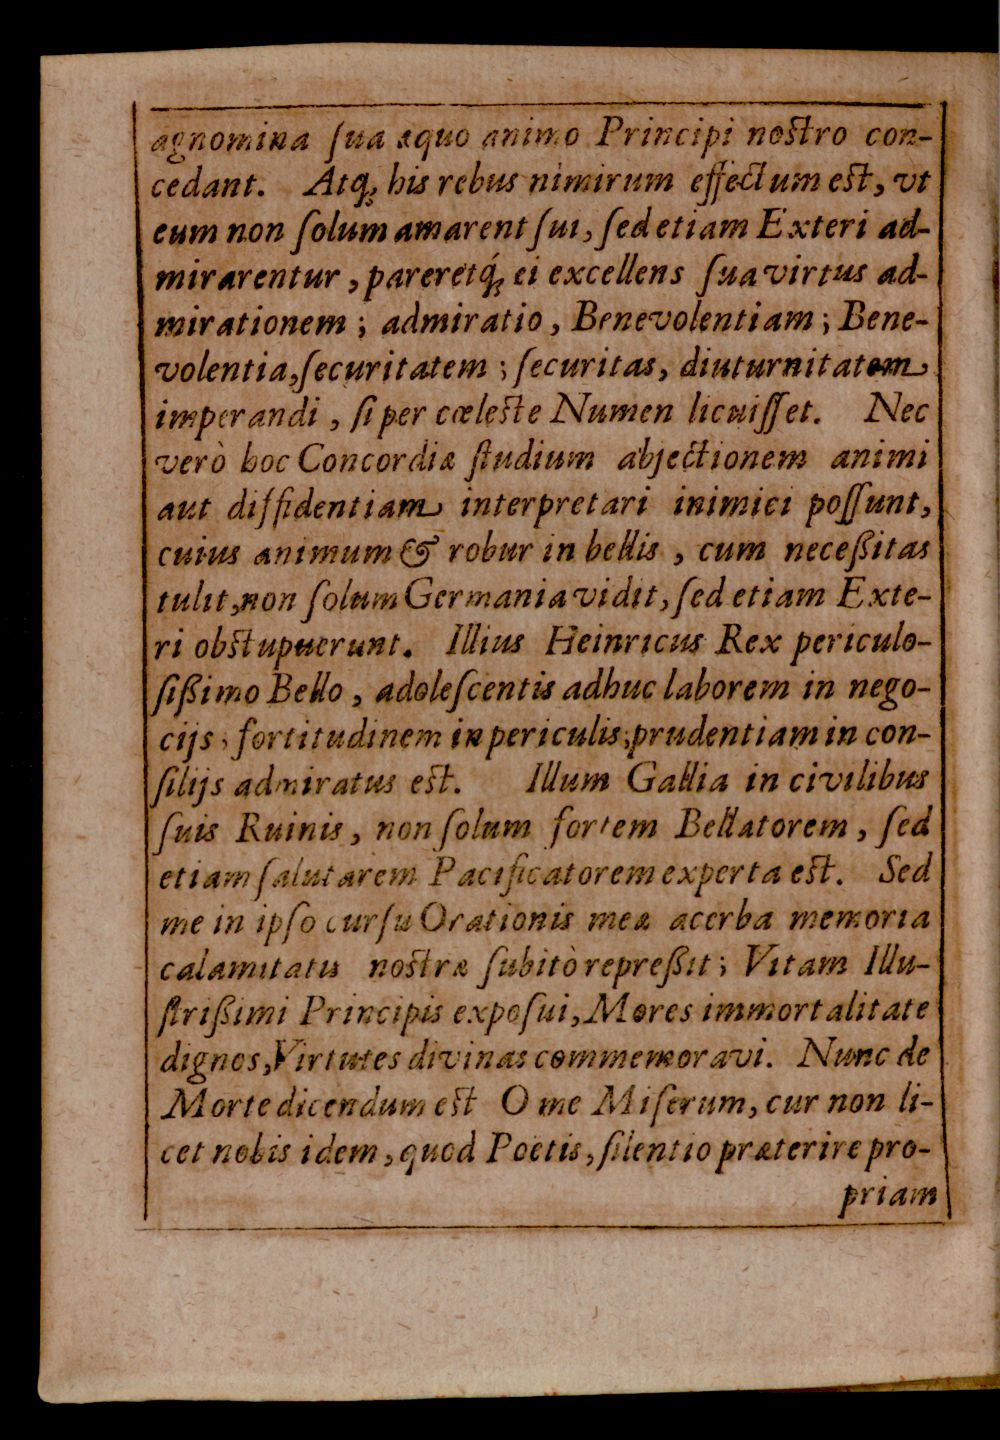 agnomina ſua æquo animo Principi noſtro con-
cedant. Atq́; his rebus nimirum effectum eſt, vt
eum non ſolum amarent ſui, ſed etiam Exteri ad-
mirarentur, pareretq́; ei excellens ſua virtus ad-
mirationem; admiratio, Benevolentiam; Bene-
volentia, ſecuritatem; ſecuritas, diuturnitatem
imperandi, ſi per cœleſte Numen licuiſſet. Nec
verò hoc Concordiæ ſtudium abjectionem animi
aut diffidentiam interpretari inimici poſſunt,
cuius animum & robur in bellis, cum neceßitas
tulit, non ſolum Germania vidit, ſed etiam Exte-
ri obſtupuerunt. Illius Heinricus Rex periculo-
ſißimo Bello, adoleſcentis adhuc laborem in nego-
cijs, fortitudinem in periculis, prudentiam in con-
ſilijs admiratus eſt. Illum Gallia in civilibus
ſuis Ruinis, non ſolum fortem Bellatorem, ſed
etiam ſalutarem Pacificatorem experta eſt. Sed
me in ipſo curſu Orationis meæ acerba memoria
calamitatis noſtræ ſubitò repreßit; Vitam Illu-
ſtrißimi Principis expoſui, Mores immortalitate
dignos, Virtutes divinas commemoravi. Nunc de
Morte dicendum eſt O me Miſerum, cur non li-
cet nobis idem, quod Poëtis, ſilentio præterire pro-
priam